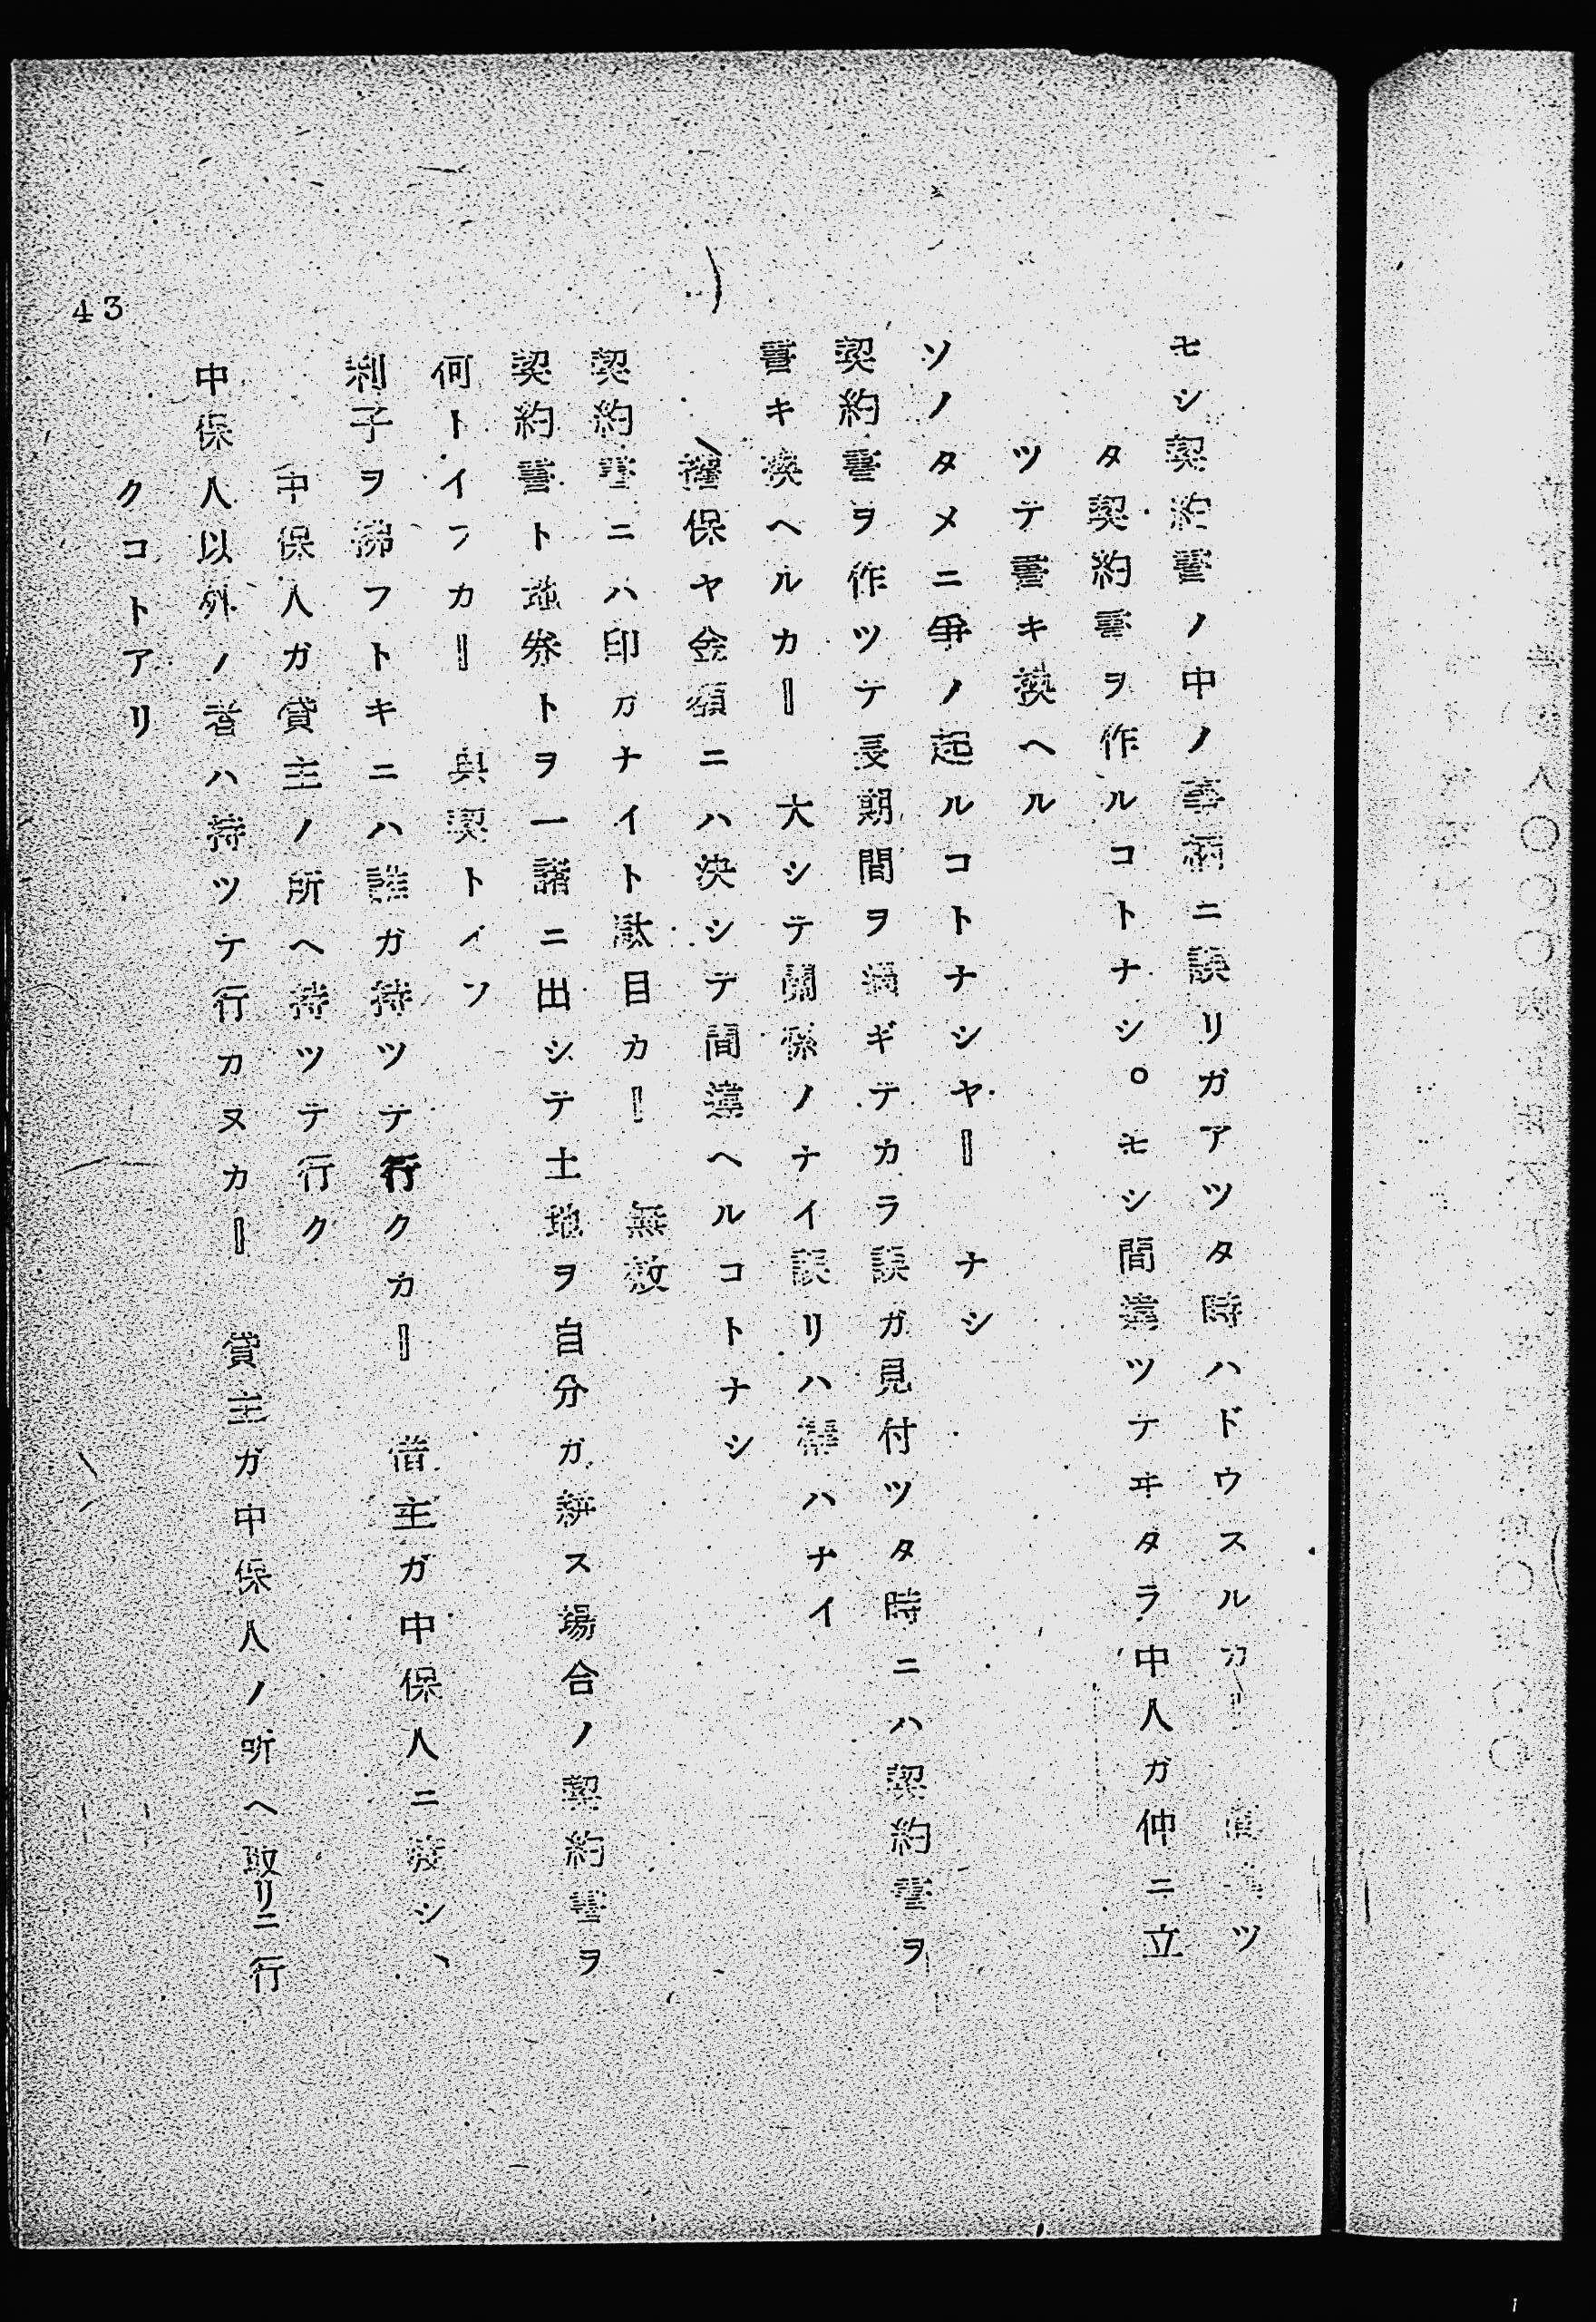 モシ契約書ノ中ノ事柄ニ誤リガアツタ時ハドウスルカ＝　間違ツ
タ契約書ヲ作ルコトナシ。モシ間違ツテヰタラ中人ガ仲ニ立
ツテ書キ換ヘル
ソノタメニ争ノ起ルコトナシヤ＝　ナシ
契約書ヲ作ツテ長期間ヲ過ギテカラ誤ガ見付ツタ時ニハ契約書ヲ
書キ換ヘルカ＝　大シテ関係ノナイ誤リハ構ハナイ
担保ヤ金額ニハ決シテ間違ヘルコトナシ
契約書ニハ印ガナイト駄目カ＝　無效
契約書ト地券トヲ一諸ニ出シテ土地ヲ自分ガ耕ス場合ノ契約書ヲ
何トイフカ＝　典契トイフ
利子ヲ拂フトキニハ誰ガ持ツテ行クカ＝　借主ガ中保人ニ渡シ、
中保人ガ貸主ノ所ヘ持ツテ行ク
中保人以外ノ者ハ持ツテ行カヌカ＝　貸主ガ中保人ノ所ヘ取リニ行
クコトアリ
43